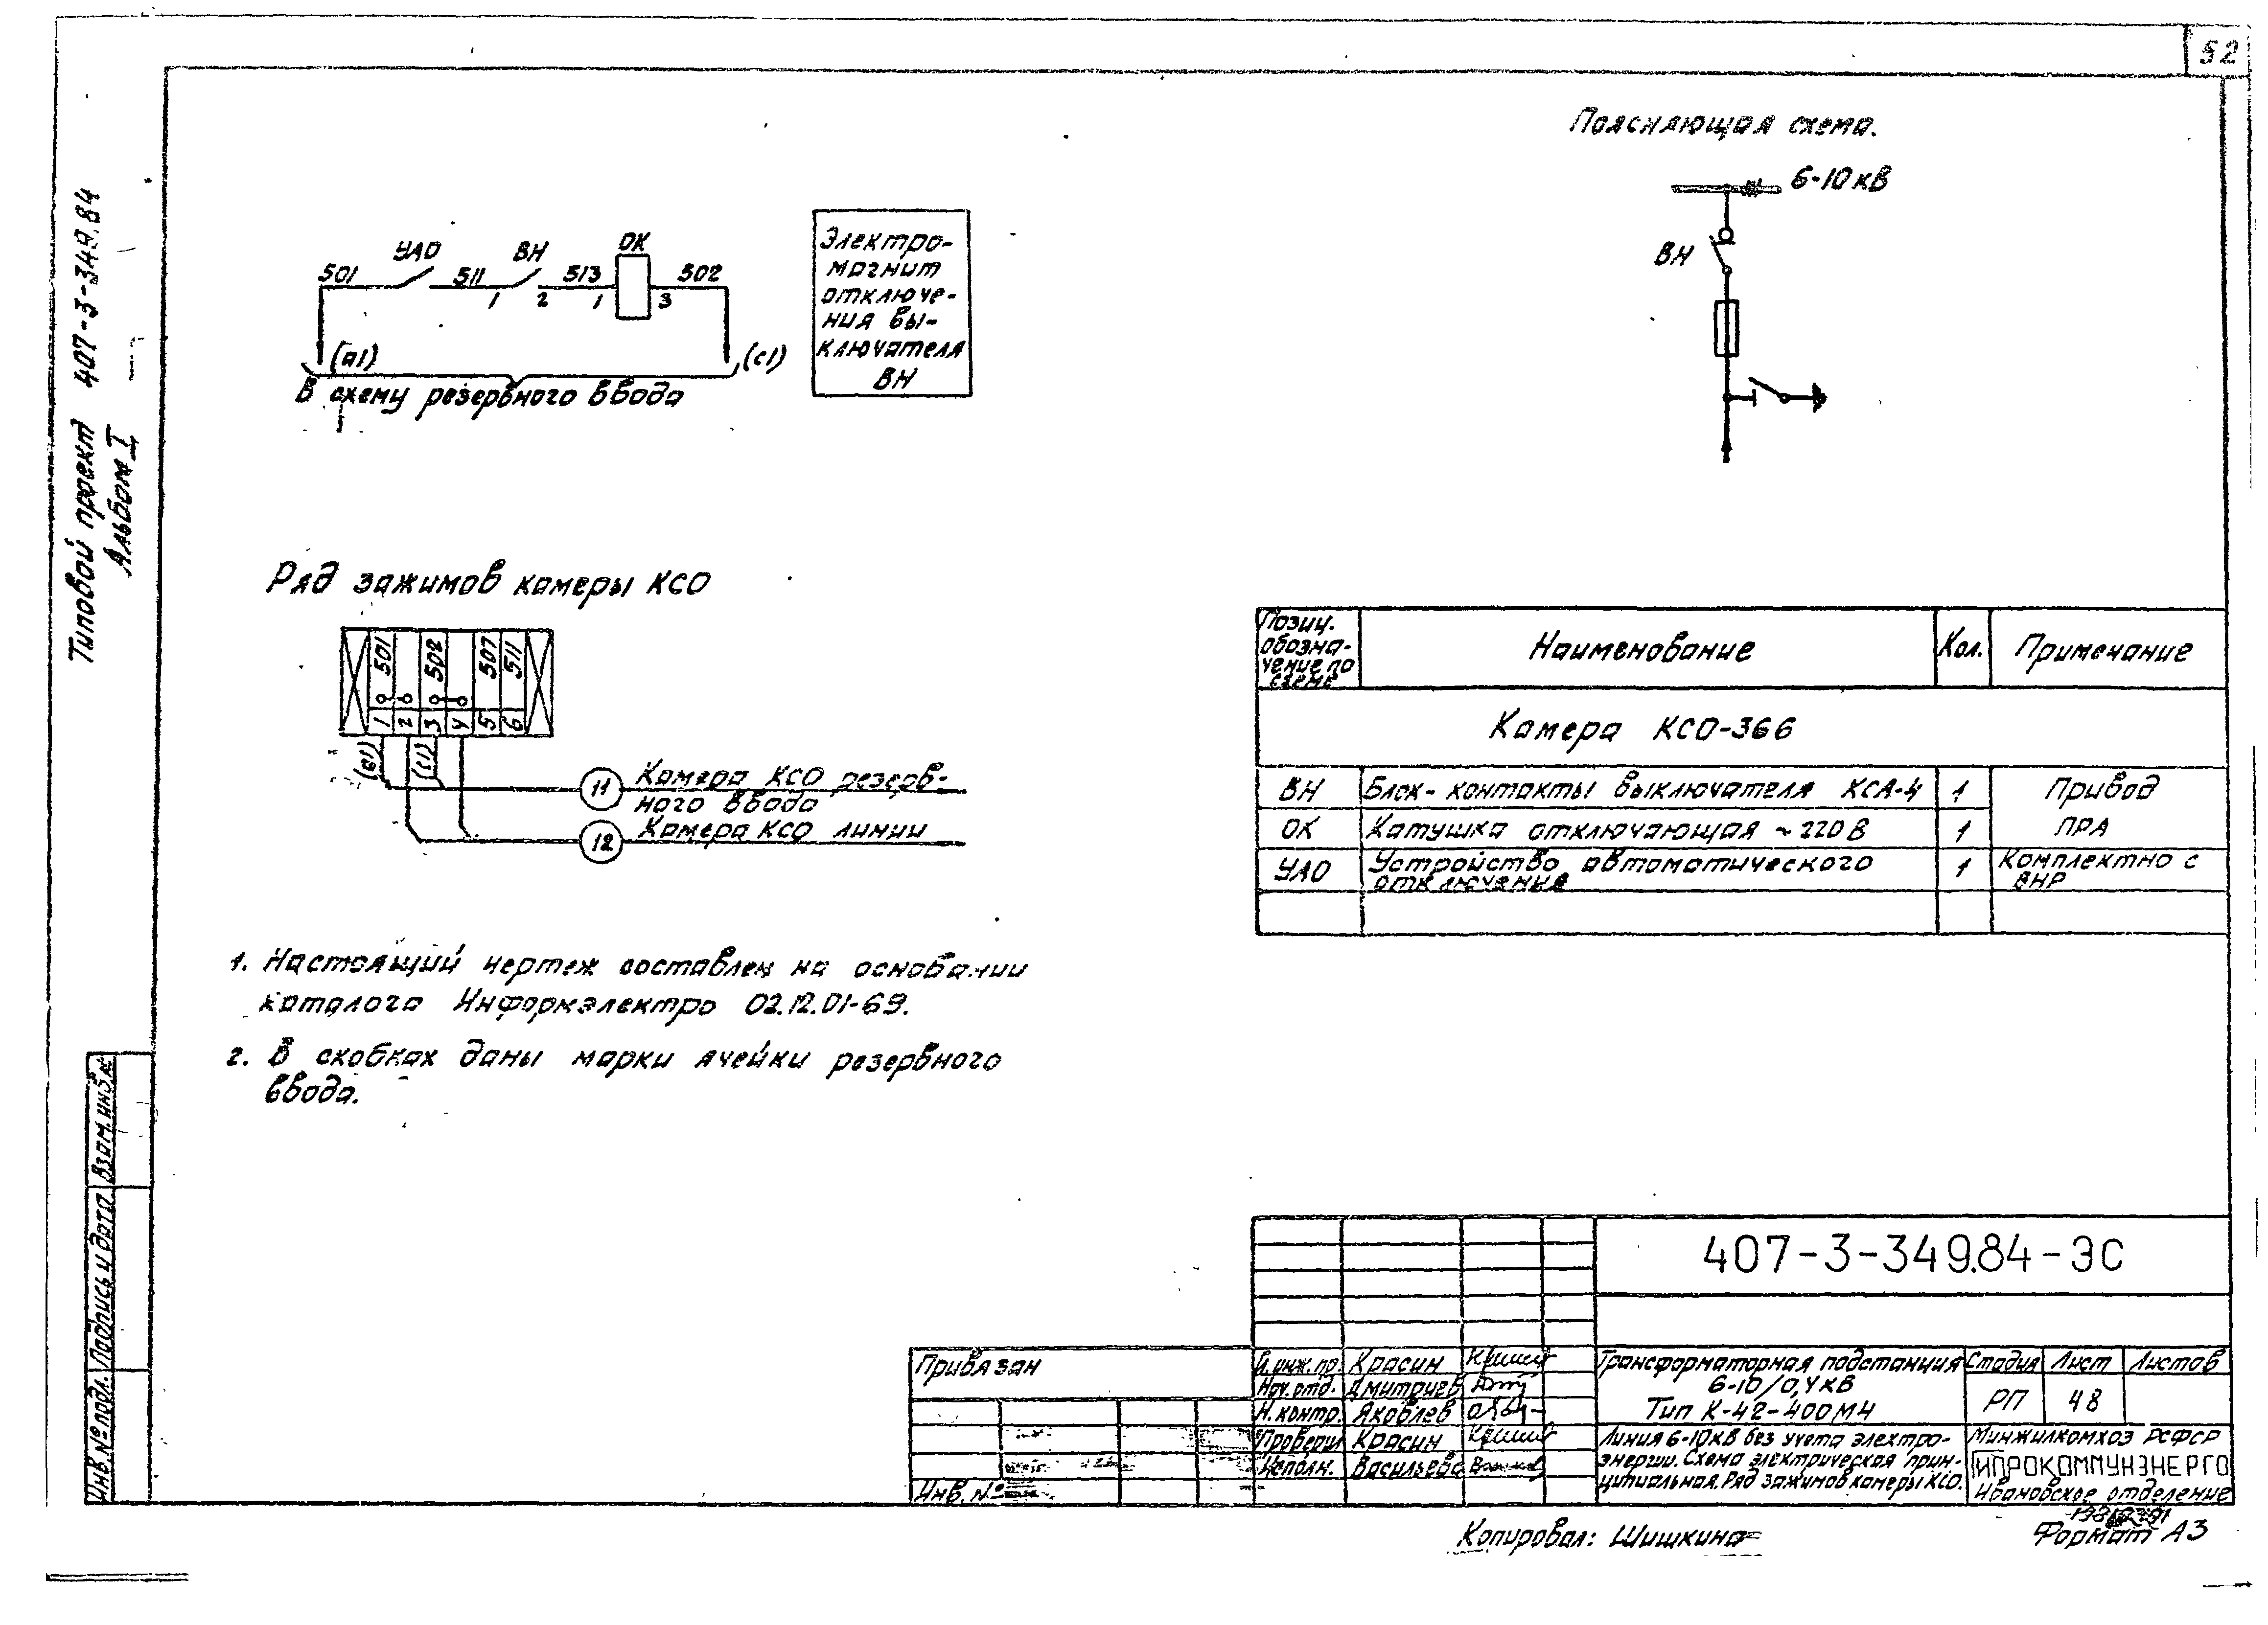 52
Типовой проект 407-3-349.84
Альбом I
Поясняющая схема.
6-10 кв
ВН
501
УАО
511
ВН
513
ОК
502
1
2
1
3
(а1)
(с1)
В схему резервного ввода
Электро-
магнит
отключе-
ния вы-
ключателя
ВН
Ряд зажимов камеры КСО
501
502
507
511
1
2
3
4
5
6
(а1)
(с1)
11 Камера КСО резерв-
ного ввода
12 Камера КСО линии
Позиц.
обозна-
чение по
схеме
Наименование
Кол.
Примечание
Камера КСО-366
ВН Блок-контакты выключателя КСА-4 1 Привод
ОК Катушка отключающая ~220В 1 ПРА
УАО Устройство автоматического
отключения
1 Комплектно с
ВНР
1. Настоящий чертеж составлен на основании
каталога Информэлектро 02.12.01-69.
2. В скобках даны марки ячейки резервного
ввода.
Взам. инв. №
Подпись и дата
Инв. № подл.
407-3-349.84-ЭС
Привязан
Инв. №
Гл. инж. пр. Красин
Нач. отд. Дмитриев
Н. контр. Яковлев
Провери Красин
Исполн. Васильева
Трансформаторная подстанция
6-10/0,4кв
Тип К-42-400М4
Стадия Лист Листов
РП 48
Линия 6-10кв без учета электро-
энергии. Схема электрическая прин-
ципиальная. Ряд зажимов камеры КСО.
Минжилкомхоз РСФСР
ГИПРОКОММУНЭНЕРГО
Ивановское отделение
Копировал: Шишкина
Формат А3